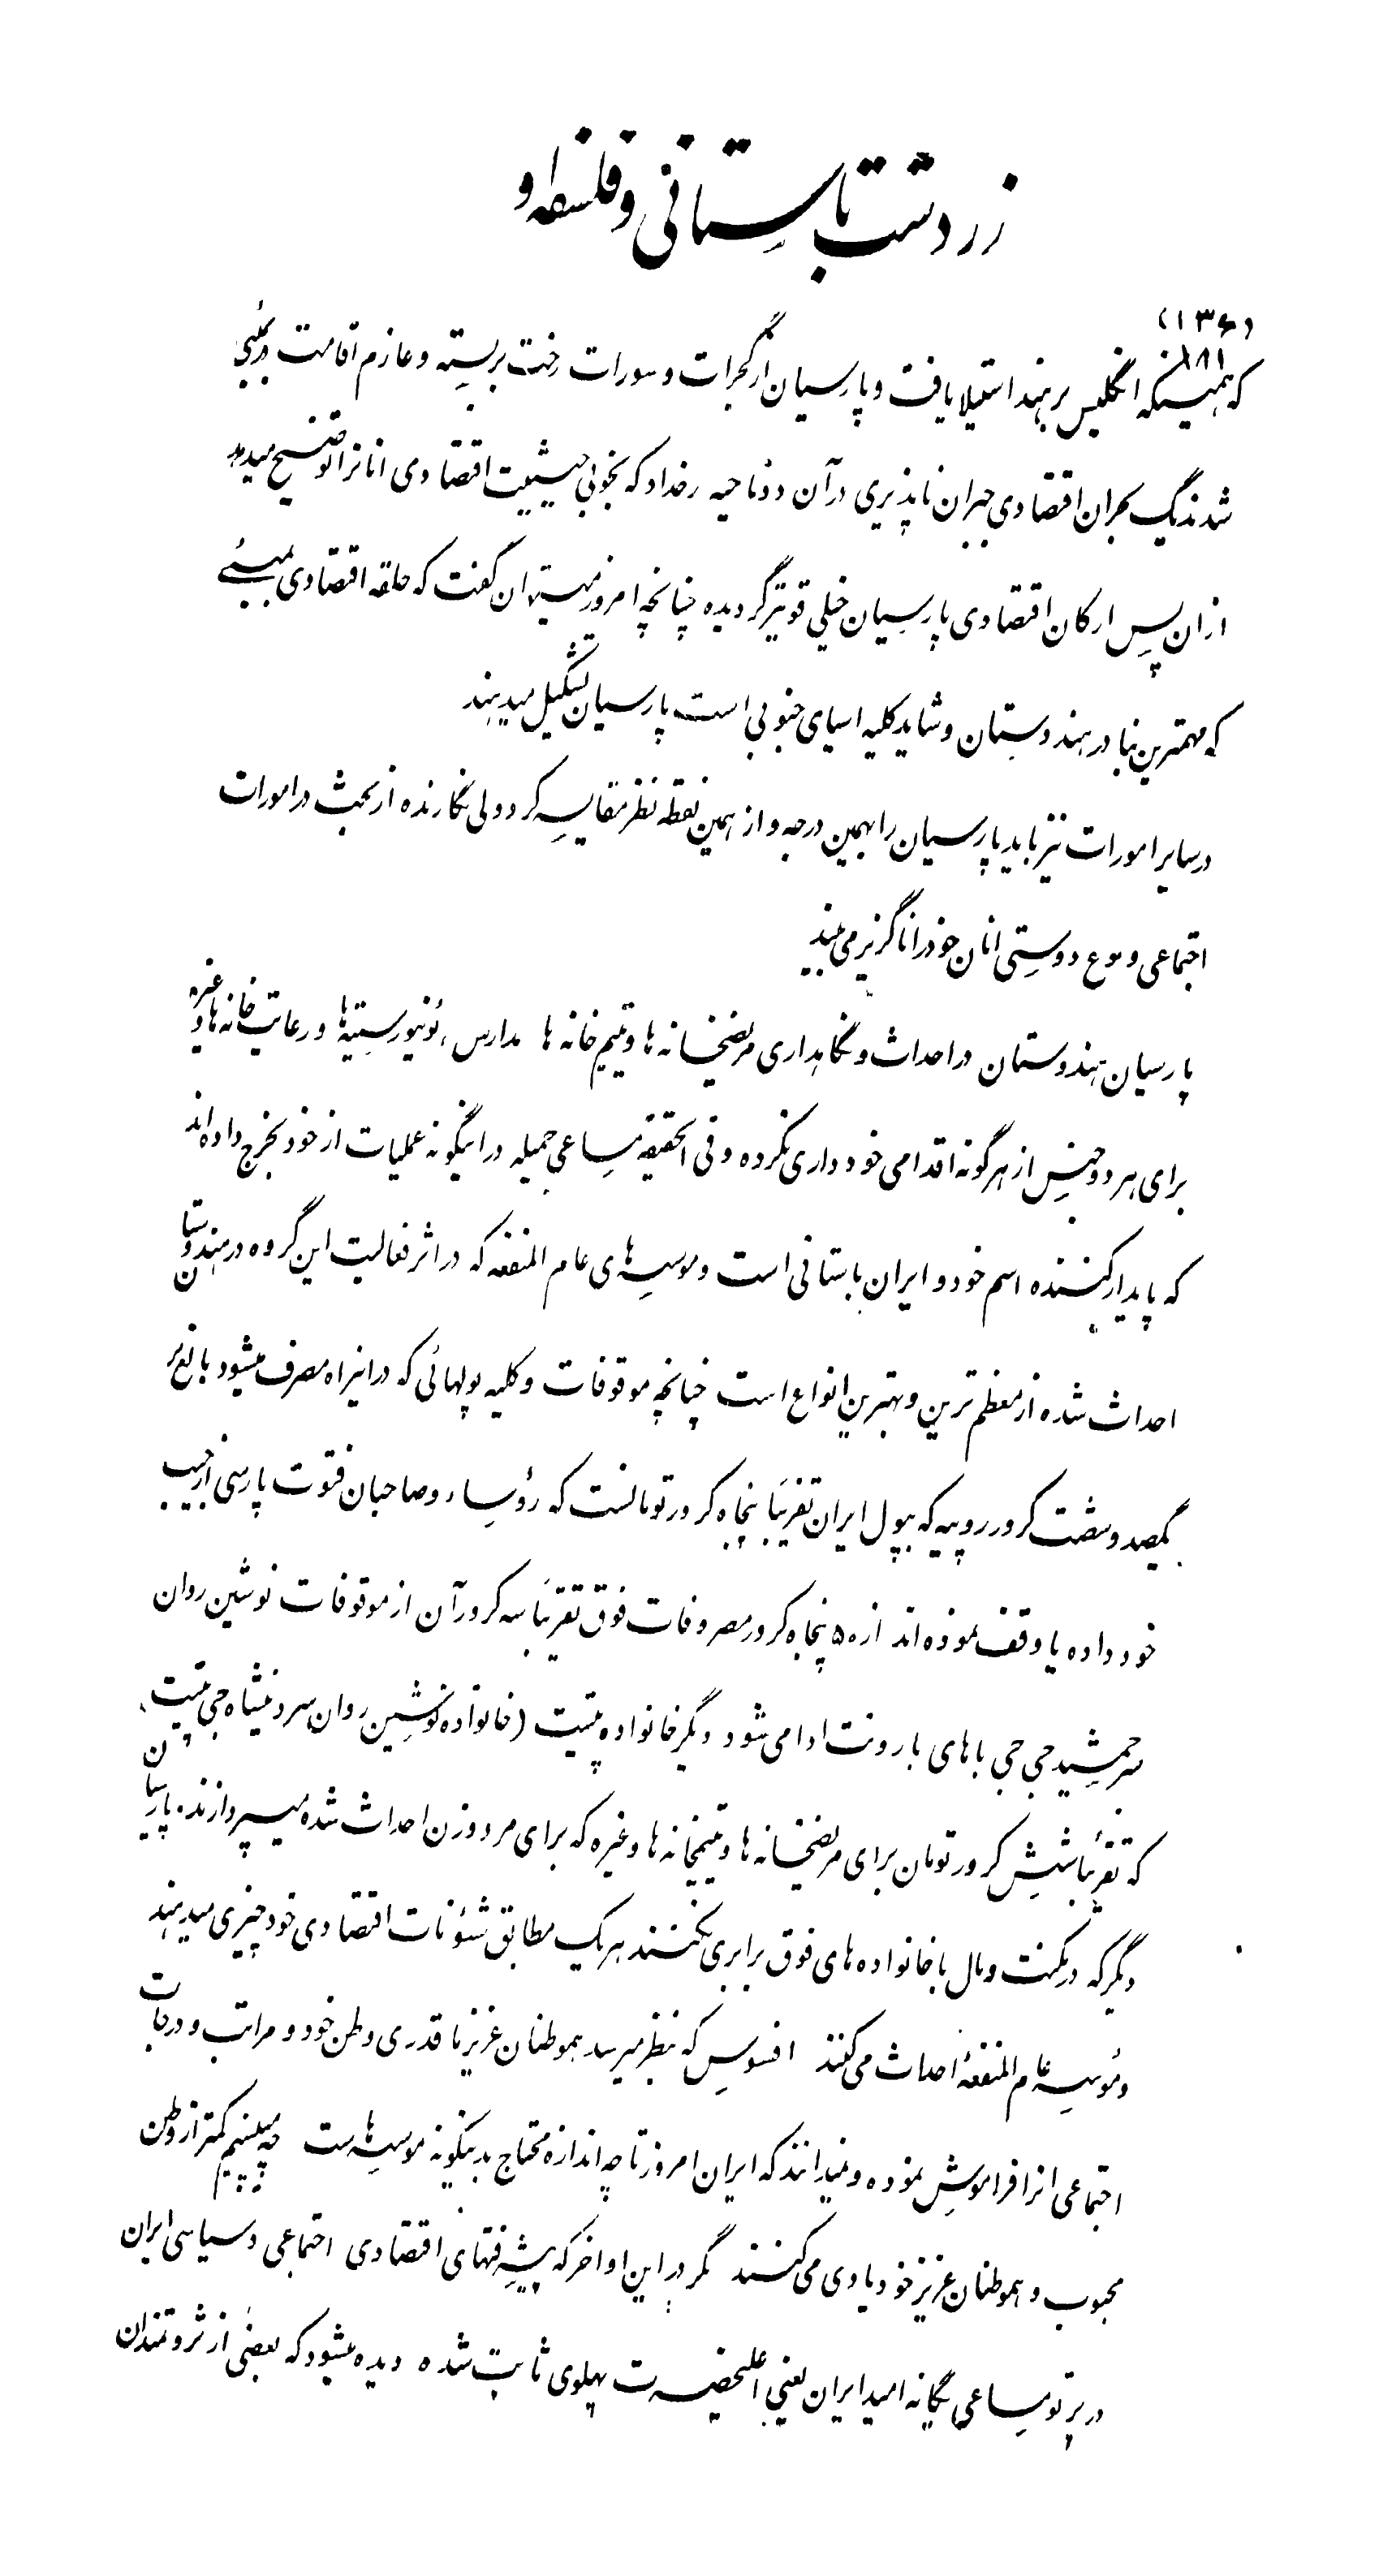 زردشت باستانی و فلسفه او
(۱۳۶)
۱۸۱
که همینکه انگلیس بر هند استیلا یافت و پارسیان از گجرات و سورات رخت بر بسته و عازم اقامت در بمبئی
شدند یک بحران اقتصادی جبران ناپذیری در آن دو ناحیه رخداد که بخوبی حیثیت اقتصادی انانرا توضیح میدهد
از ان پس ارکان اقتصادی پارسیان خیلی قویتر گردیده چنانچه امروز میتوان گفت که حلقه اقتصادی بمبئی
که مهمترین بنادر هندوستان و شاید کلیه اسیای جنوبی است پارسیان تشکیل میدهند
در سایر امورات نیز باید پارسیان را بهمین درجه و از همین نقطه نظر مقایسه کرد ولی نگارنده از بحث در امورات
اجتماعی و نوع دوستی انان خود را ناگزیر می بیند
پارسیان هندوستان در احداث و نگاهداری مریضخانه ها و یتیم خانه ها مدارس، یونیورسیتیه ها و رعایت خانه ها و غیره
برای هر دو جنس از هر گونه اقدامی خود داری نکرده و فی الحقیقه مساعی جمیله در اینگونه عملیات از خود بخرج داده اند
که پایدار کننده اسم خود و ایران باستانی است و موسسه های عام المنفعه که در اثر فعالیت این گروه در هندوستان
احداث شده از معظم ترین و بهترین انواع است چنانچه موقوفات و کلیه پولهائی که در اینراه مصرف میشود بالغ بر
یکصد و شصت کرور روپیه که بپول ایران تقریباً پنجاه کرور تومانست که رؤساء و صاحبان فتوت پارسی از جیب
خود داده یا وقف نموده اند از ۵۰ پنجاه کرور مصروفات فوق تقریباً سه کرور آن از موقوفات نوشین روان
سر جمشید جی جی باهای بارونت ادا می شود دیگر خانواده پتیت (خانواده نوشین روان سر دنیشاه جی پتیت)
که تقریباً شش کرور تومان برای مریضخانه ها و یتیمخانه ها و غیره که برای مرد و زن احداث شده میپردازند. پارسیان
دیگر که در مکنت و مال با خانواده های فوق برابری نکنند هر یک مطابق شئونات اقتصادی خود چیزی میدهند
و موسسه عام المنفعهٔ احداث می کنند افسوس که بنظر میرسد هموطنان عزیز ما قدری وطن خود و مراتب و درجات
اجتماعی انرا فراموش نموده و نمیدانند که ایران امروز تا چه اندازه محتاج بدینگونه موسسه هاست چه میبینیم کمتر از وطن
محبوب و هموطنان عزیز خود یادی می کنند مگر در این اواخر که پیشرفتهای اقتصادی اجتماعی و سیاسی ایران
در پرتو مساعی یگانه امید ایران یعنی اعلیحضرت پهلوی ثابت شده دیده میشود که بعضی از ثروتمندان